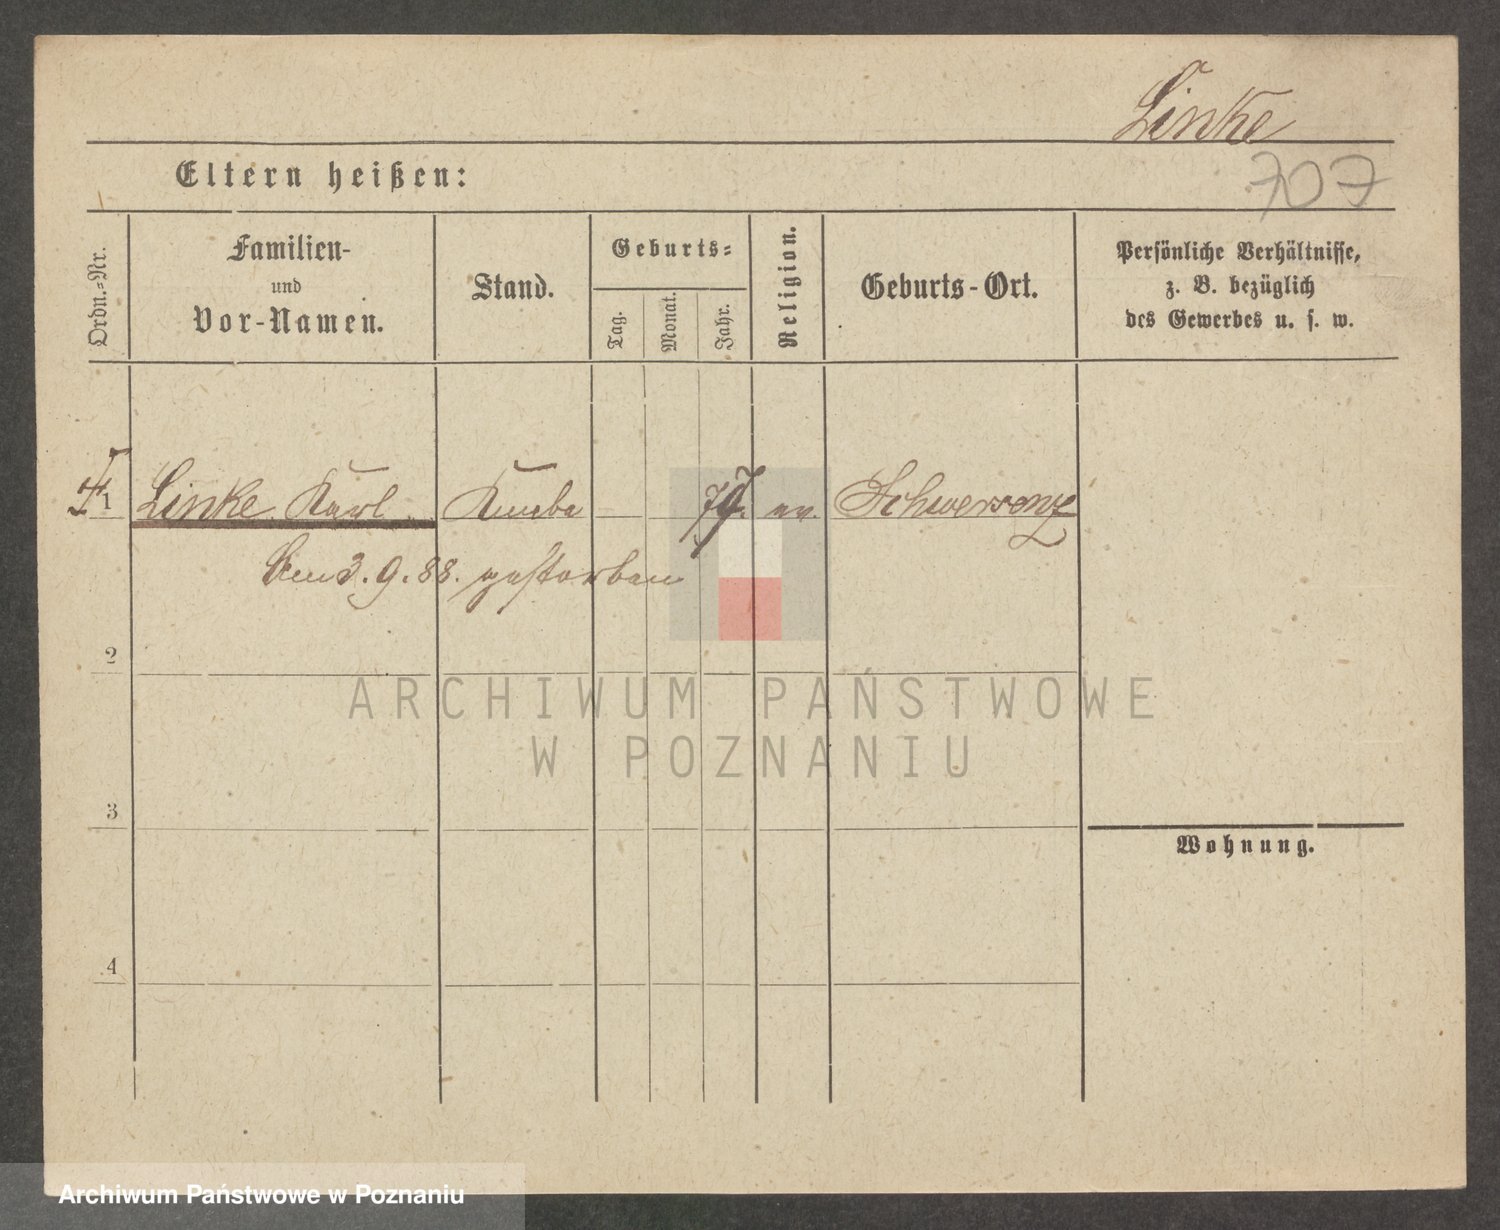 Linke
Eltern heißen:
707
Ordn.=Nr.
Familien-
und
Vor-Namen.
Stand.
Geburts=
Tag.
Monat.
Jahr.
Religion.
Geburts-Ort.
Persönliche Verhältnisse,
z. B. bezüglich
des Gewerbes u. s. w.
1 Linke Karl Knabe 79. ev. Schwersenz
Am 3.9.88. gestorben
2
ARCHIWUM PAŃSTWOWE
W POZNANIU
3
Wohnung.
4
Archiwum Państwowe w Poznaniu